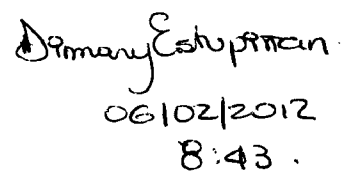 Dimary Estupiñan
06/02/2012
8:43.